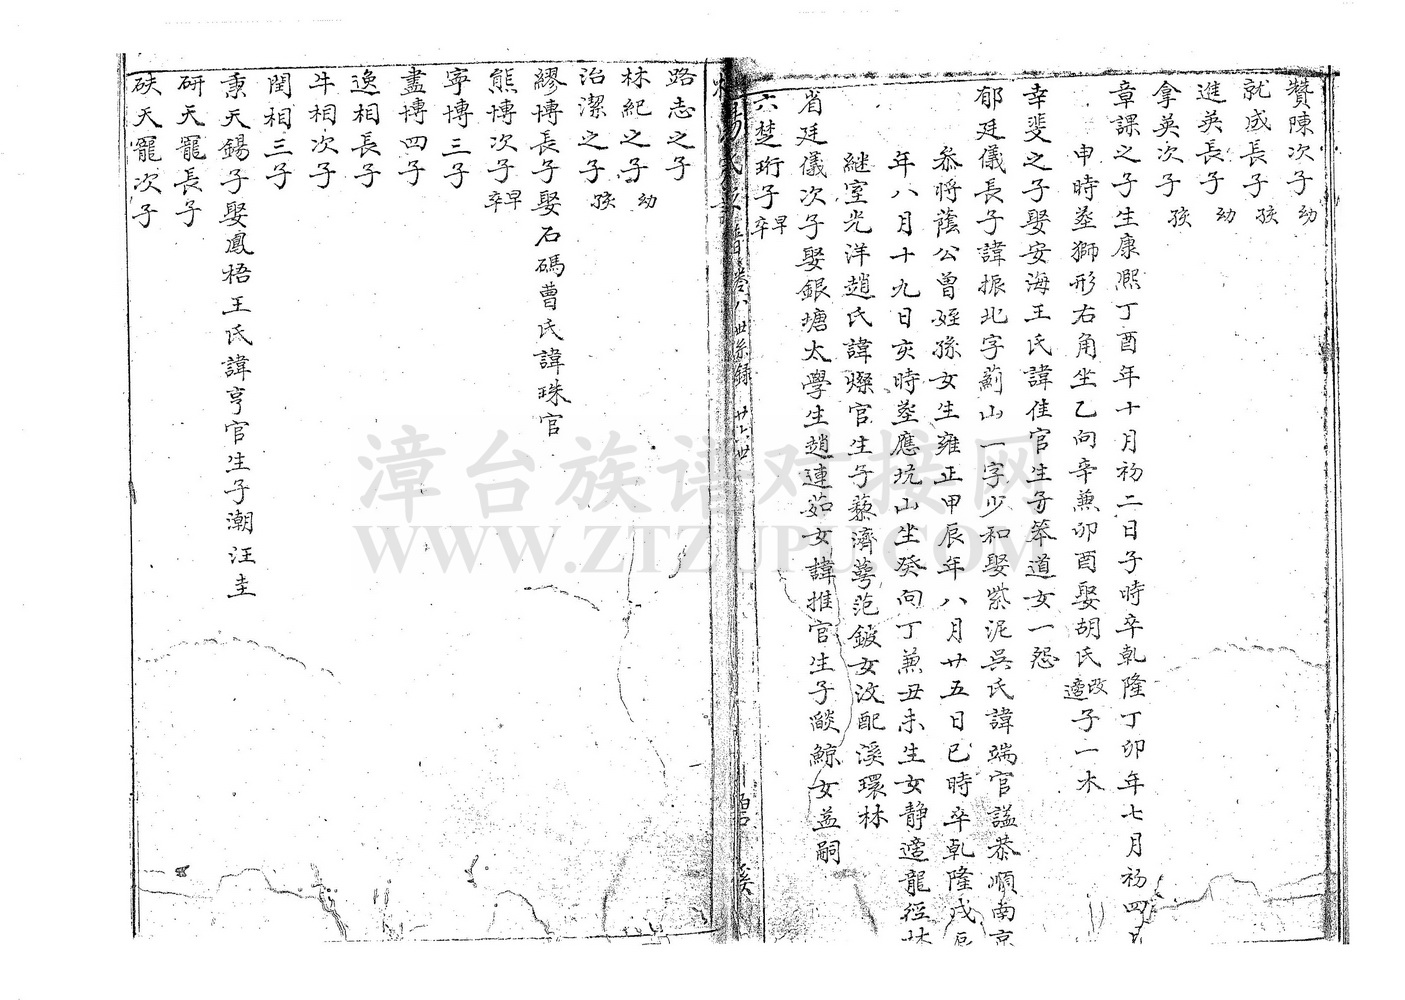 贊陳次子 幼
就成長子 孩
進英長子 幼
拿英次子 孩
章課之子生康熙丁酉年十月初二日子時卒乾隆丁卯年七月初四日
申時塟獅形右角坐乙向辛兼卯酉娶胡氏改適子一水
幸斐之子娶安海王氏諱佳官生子笨道女一怨
郁廷儀長子諱振北字薊山一字少和娶紫泥吳氏諱端官謚恭順南京
叅將蔭公曾姪孫女生雍正甲辰年八月廿五日巳時卒乾隆戊辰
年八月十九日亥時塟應坑山坐癸向丁兼丑未生女靜適龍徑林
繼室光洋趙氏諱燦官生子藜濟蕚范鈹女汶配溪環林
省廷儀次子娶銀塘太學生趙連茹女諱推官生子燄鯨女益嗣
六楚珩子 早卒
卷八世系錄 廿六世
路志之子
林紀之子 幼
治潔之子 孩
繆博長子娶石碼曹氏諱珠官
熊博次子 早卒
寧博三子
盡博四子
逸相長子
牛相次子
閏相三子
秉天錫子娶鳳梧王氏諱亨官生子潮汪圭
研天寵長子
砆天寵次子
漳台族谱对接网
WWW.ZTZUPU.COM